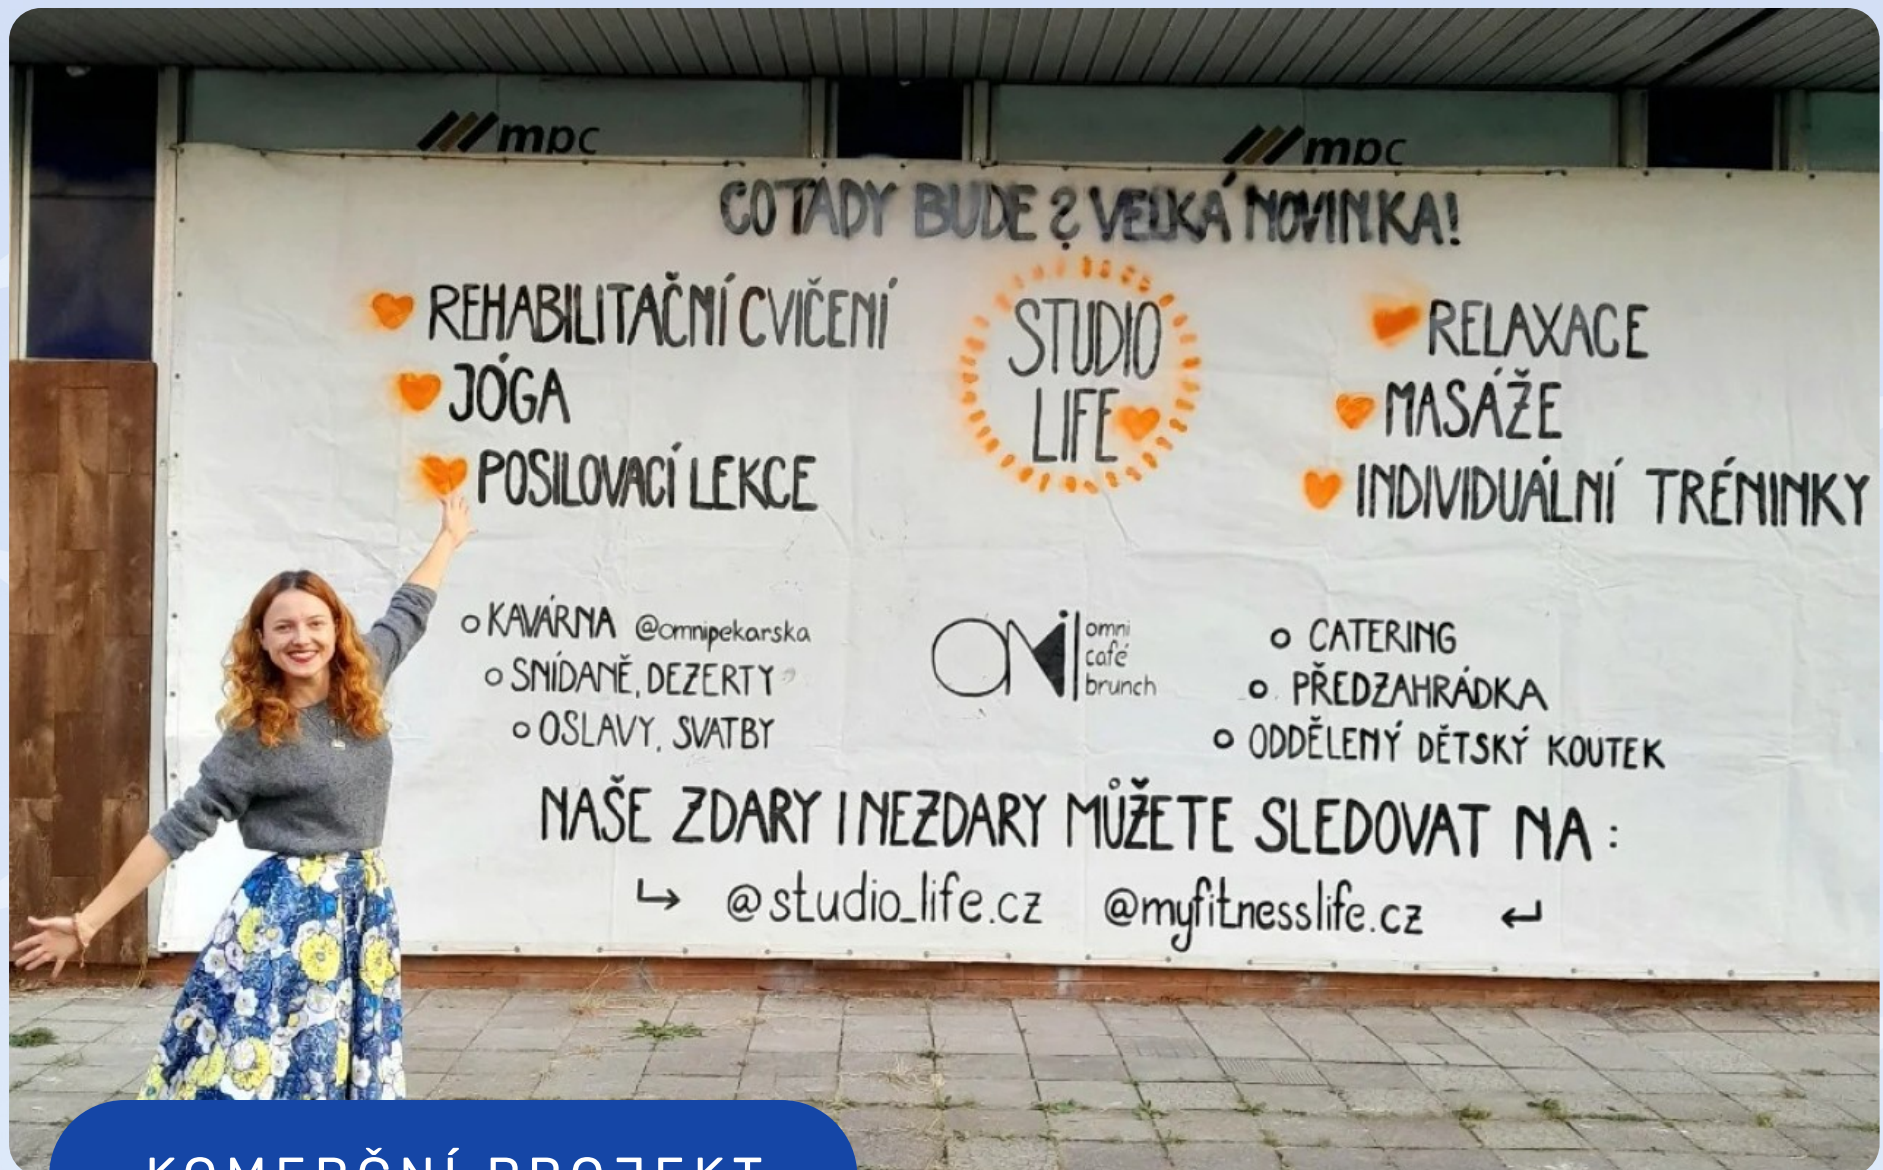 mpc
mpc
CO TADY BUDE? VELKÁ NOVINKA!
REHABILITAČNÍ CVIČENÍ
JÓGA
POSILOVACÍ LEKCE
STUDIO
LIFE
RELAXACE
MASÁŽE
INDIVIDUÁLNÍ TRÉNINKY
KAVÁRNA @omnipekarska
SNÍDANĚ, DEZERTY
OSLAVY, SVATBY
omni
café
brunch
CATERING
PŘEDZAHRÁDKA
ODDĚLENÝ DĚTSKÝ KOUTEK
NAŠE ZDARY I NEZDARY MŮŽETE SLEDOVAT NA:
@studio_life.cz @myfitnesslife.cz
KOMERČNÍ PROJEKT